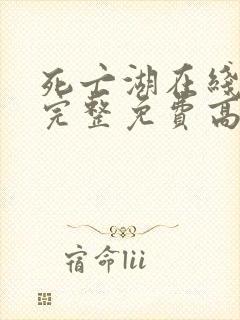 死亡湖在线
完整免費高
宿命lii